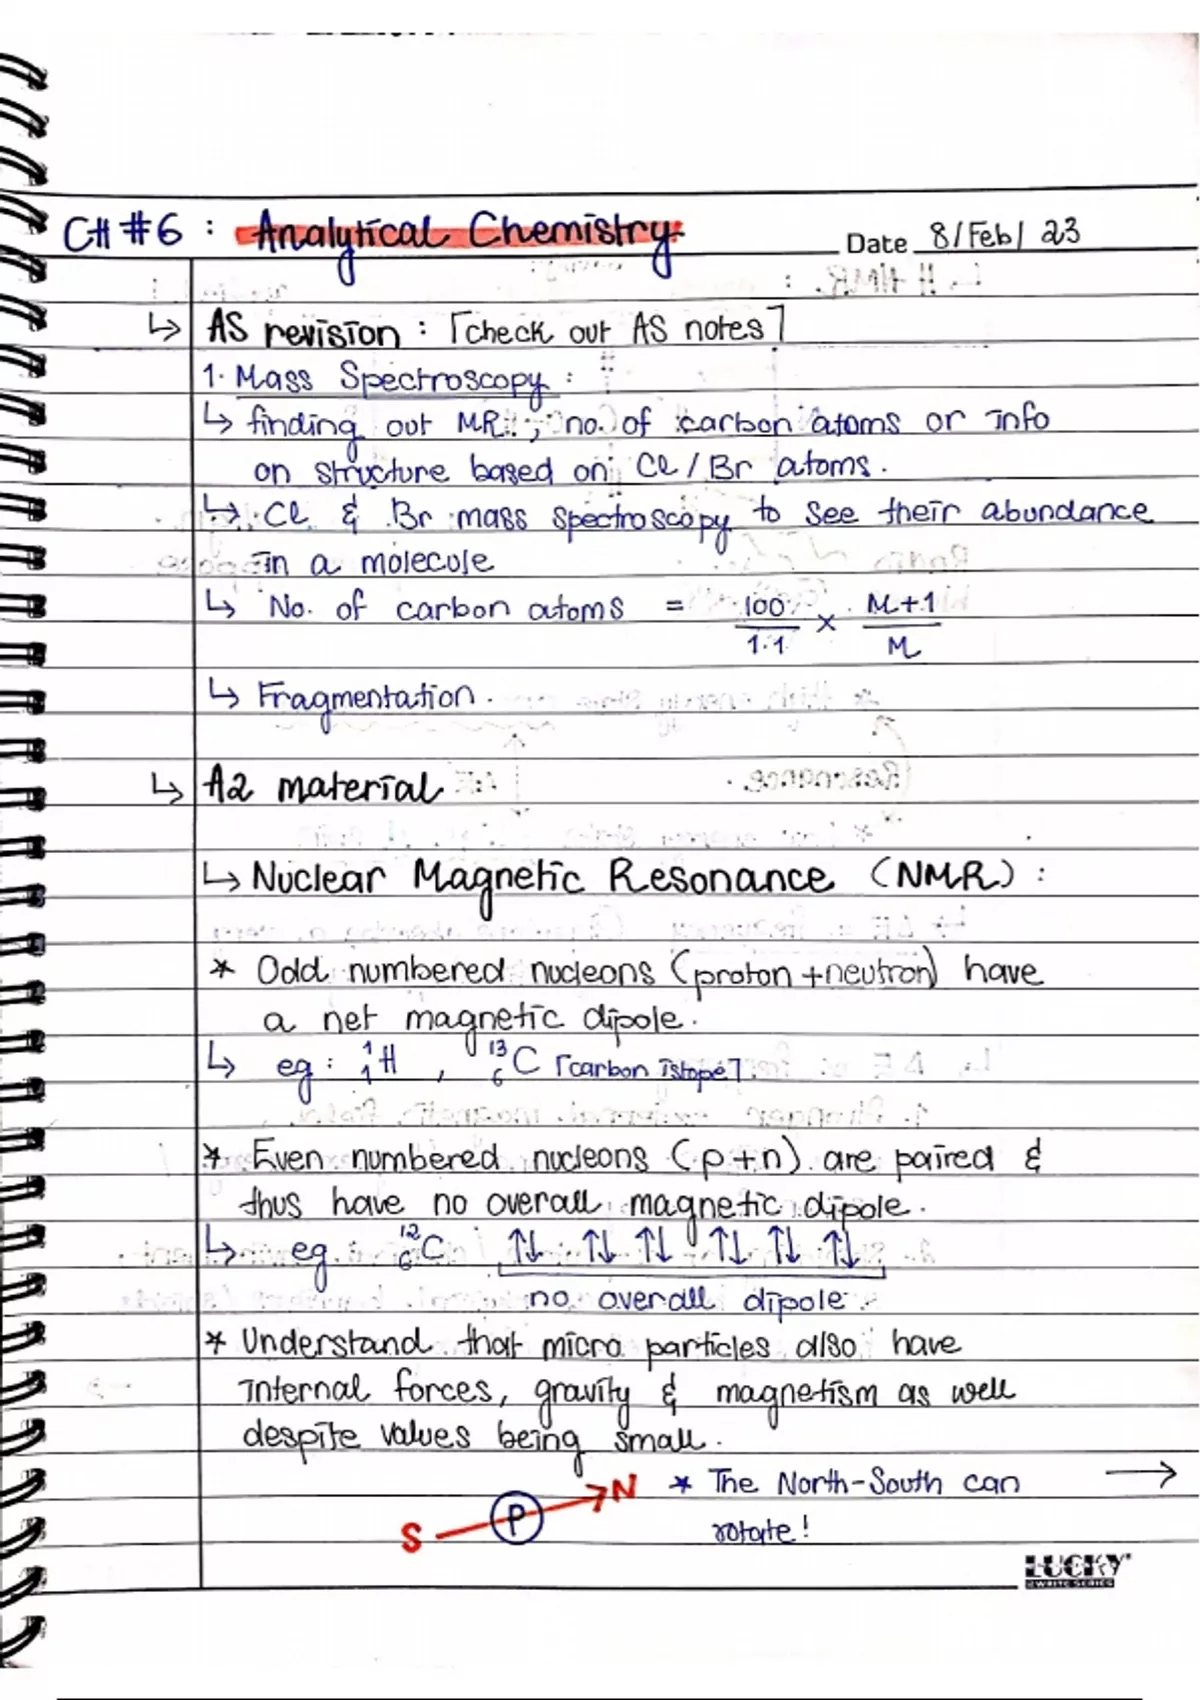 CH #6 : Analytical Chemistry
Date 8/Feb/ 23
↳ AS revision : [check out AS notes]
1. Mass Spectroscopy :
↳ finding out MR , no. of carbon atoms or info
on structure based on Cl / Br atoms.
↳ Cl & Br mass spectroscopy to see their abundance
in a molecule
↳ No. of carbon atoms = 100/1.1 × M+1/M
↳ Fragmentation.
↳ A2 material
↳ Nuclear Magnetic Resonance (NMR) :
* Odd numbered nucleons (proton + neutron) have
a net magnetic dipole.
↳ eg : ¹₁H , ¹³₆C [carbon istope]
* Even numbered nucleons (p+n) are paired &
thus have no overall magnetic dipole.
↳ eg ¹²₆C ↑↓ ↑↓ ↑↓ ↑↓ ↑↓ ↑↓
no overall dipole.
* Understand that micro particles also have
internal forces, gravity & magnetism as well
despite values being small.
S P N
* The North-South can →
rotate!
LUCKY